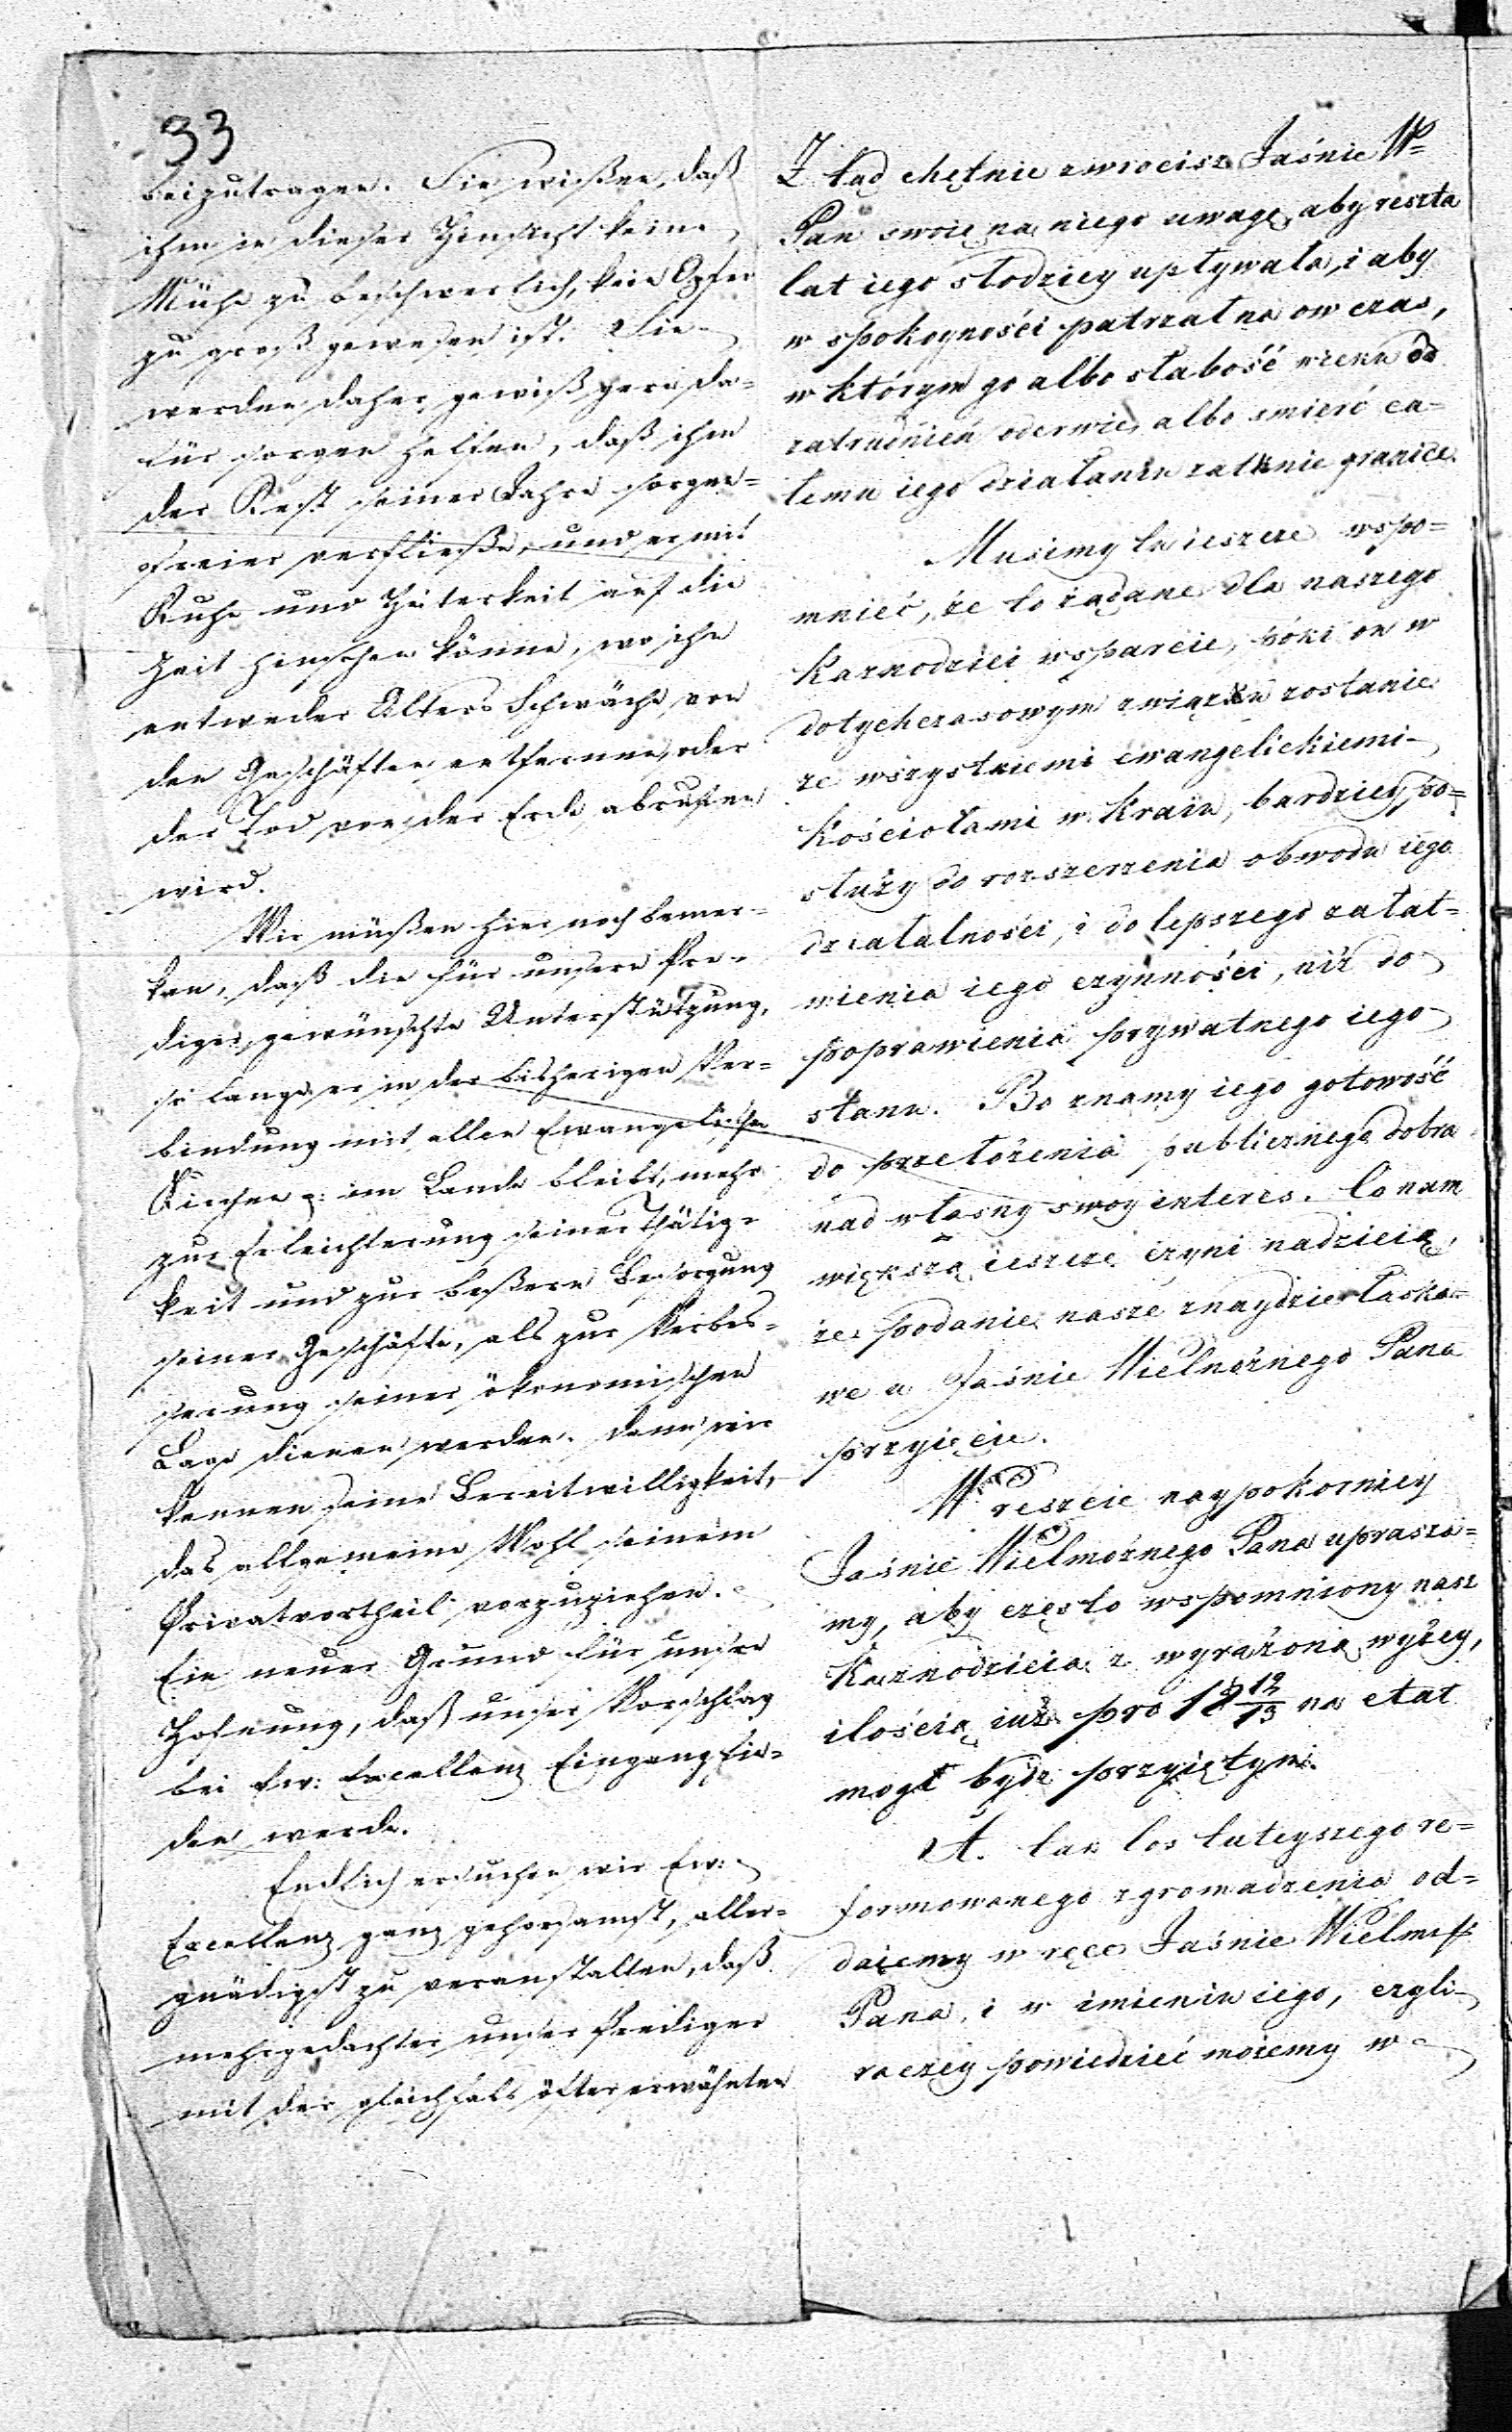 33
beizutragen. Sie wißen, daß
ihm in dieser Hinsicht keine
Mühe zu beschwerlich, kein Opfer
zu groß gewesen ist. Sie
werden daher gewiß gern da=
für sorgen helfen, daß ihm
der Rest seiner Jahre sorgen=
freier verfließe, und er mit
Ruhe und Heiterkeit auf die
Zeit hinsehen könne, wo ihn
entweder Alters Schwäche von
den Geschäften entfernen, oder
der Tod von der Erde abrufen
wird.
Wir müßen hier noch bemer=
ken, daß die für unsern Pre=
diger gewünschte Unterstützung,
so lange er in der bisherigen Ver=
bindung mit allen Evangelischen
Kirchen im Lande bleibt, mehr
zur Erleichterung seiner Thätig=
keit und zur beßern Besorgung
seiner Geschäfte, als zur Verbes=
serung seiner ökonomischen
Lage dienen werde. Denn wir
kennen seine Bereitwilligkeit,
das allgemeine Wohl seinem
Privatvortheil vorzuziehen.
Ein neuer Grund für unsre
Hofnung, daß unser Vorschlag
bei Ew: Excellenz Eingang fin=
den werde.
Endlich ersuchen wir Ew:
Excellenz ganz gehorsamst, aller=
gnädigst zu veranstalten, daß
mehrgedachter unser Prediger
mit der gleichfals öfter erwähnten
Z tąd chętnie zwrocisz Jaśnie W=
Pan swoię na niego uwagę, aby reszta
lat iego słodziey upływała, i aby
w spokoyności patrzał na ow czas,
w którym go albo słabość wieku od
zatrudnień oderwie, albo smierć ca=
łemu iego działaniu zatknie granice.
Musimy tu ieszcze wspo=
mnieć, że to żądane dla naszego
Kaznodziei wsparcie, póki on w
dotychczasowym związku zostanie
ze wszystkiemi ewangelickiemi
Kościołami w Kraiu, bardziey po=
służy do rozszerzenia obwodu iego
działalności, i do lepszego załat=
wienia iego czynności, niż do
poprawienia prywatnego iego
stanu. Bo znamy iego gotowość
do przełożenia publicznego dobra
nad własny swoy interes. Co nam
większą ieszcze czyni nadzieię,
że podanie nasze znaydzie łaska=
we u Jaśnie Wielmożnego Pana
przyięcie.
W reszcie naypokorniey
Jaśnie Wielmożnego Pana uprasza=
my, aby często wspomniony nasz
Kaznodzieia z wyrażoną wyżey,
ilością iuż pro 18 12/13 na etat
mogł bydź przyiętym.
A tak los tuteyszego re=
formowanego zgromadzenia od=
daiemy w ręce Jaśnie Wielm
Pana, i w imieniu iego, czyli
raczey powiedzieć możemy w